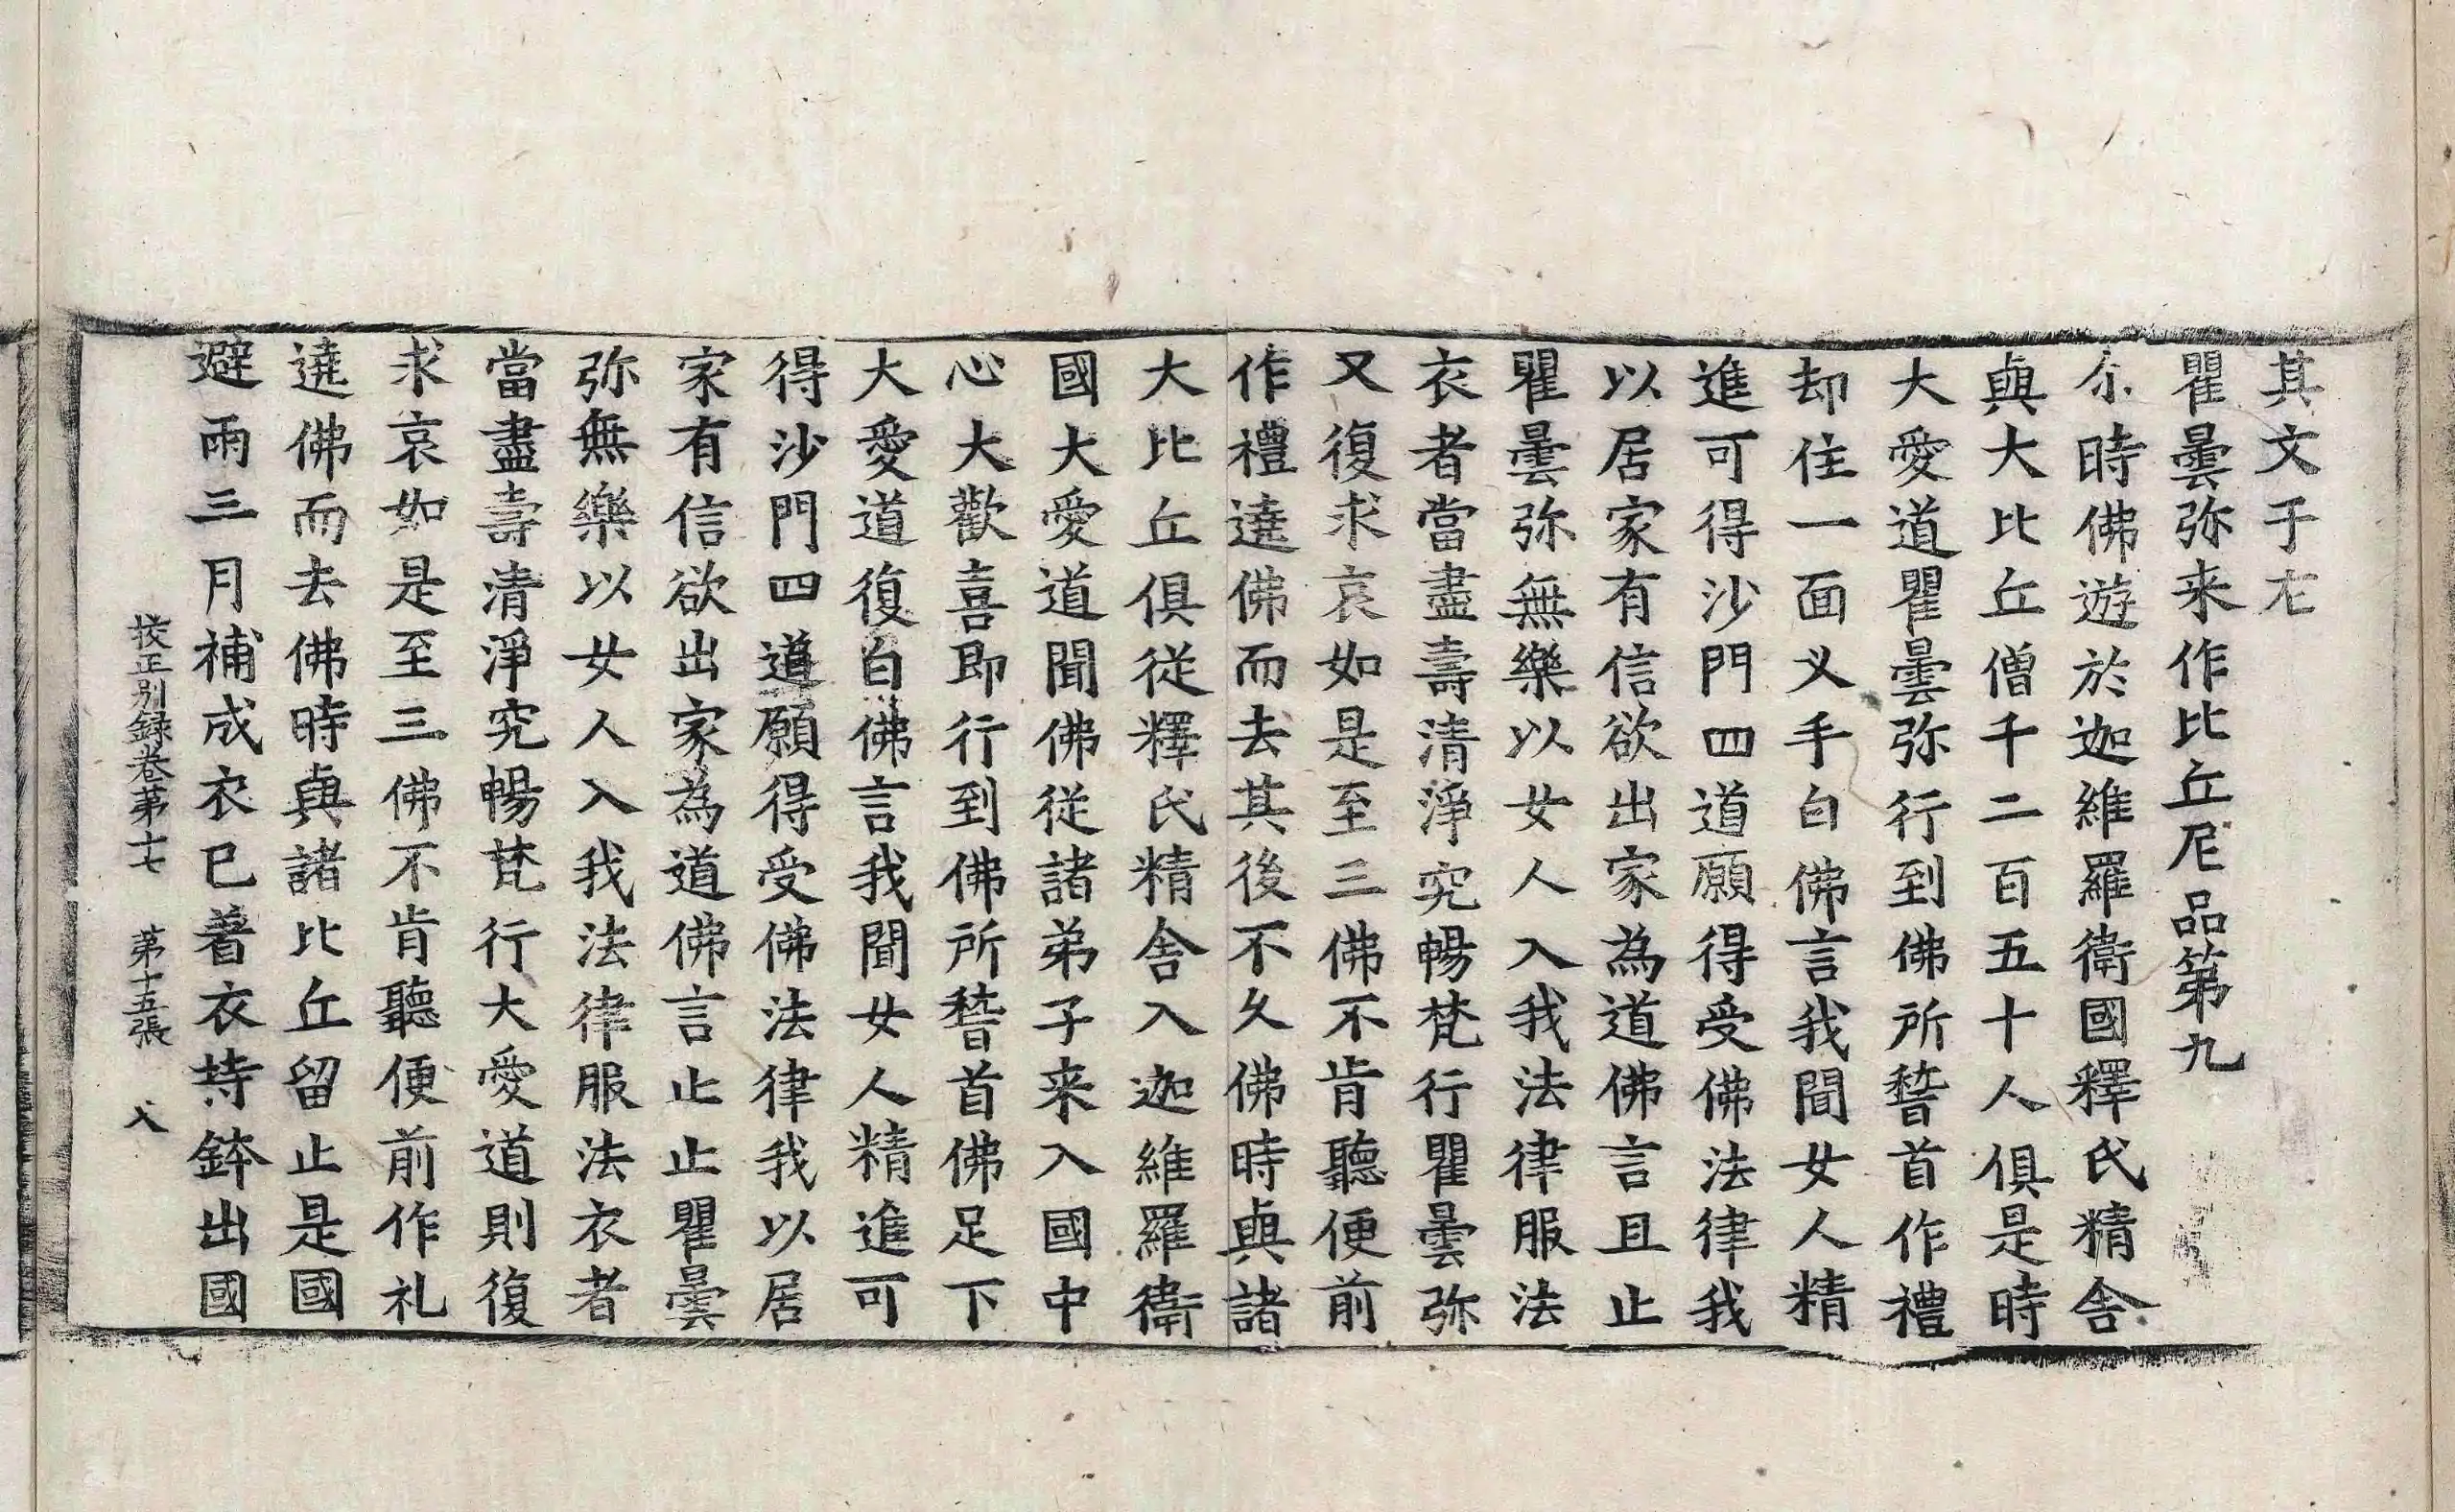 其文于左
瞿曇弥来作比丘尼品第九
尒時佛遊於迦維羅衛國釋氏精舎
與大比丘僧千二百五十人俱是時
大愛道瞿曇弥行到佛所稽首作禮
却住一面叉手白佛言我聞女人精
進可得沙門四道願得受佛法律我
以居家有信欲出家為道佛言且止
瞿曇弥無樂以女人入我法律服法
衣者當盡壽清淨究暢梵行瞿曇弥
又復求哀如是至三佛不肯聽便前
作禮遶佛而去其後不久佛時與諸
大比丘俱從釋氏精舎入迦維羅衛
國大愛道聞佛從諸弟子来入國中
心大歡喜即行到佛所稽首佛足下
大愛道復白佛言我聞女人精進可
得沙門四道願得受佛法律我以居
家有信欲出家為道佛言止止瞿曇
弥無樂以女人入我法律服法衣者
當盡壽清淨究暢梵行大愛道則復
求哀如是至三佛不肯聽便前作礼
遶佛而去佛時與諸比丘留止是國
避雨三月補成衣已著衣持鉢出國
校正别録卷第十七 第十五張